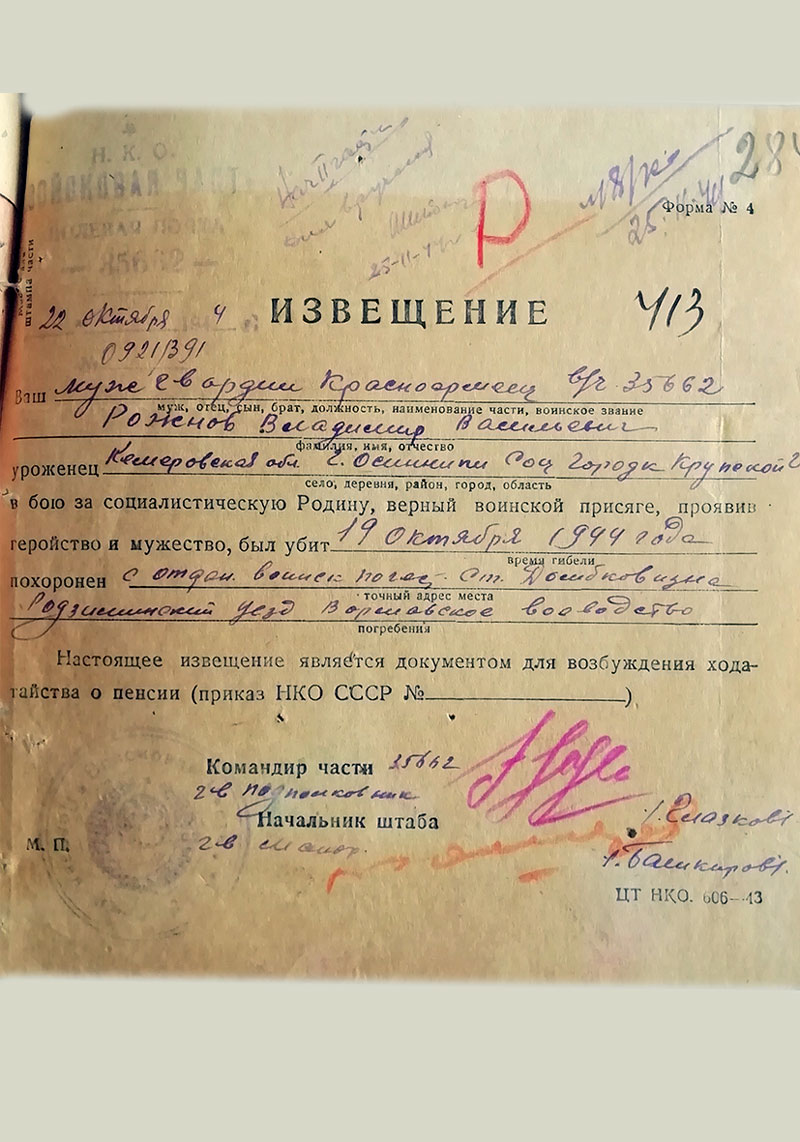 Н. К. О.
ПОЛЕВАЯ ПОЧТА
— 35662 —
25-11-44
Р
25.11.44
284
Форма № 4
штампа части
22 октября 4
ИЗВЕЩЕНИЕ
413
0921/391
Ваш муж Гвардии Красноармеец в/ч 35662
муж, отец, сын, брат, должность, наименование части, воинское звание
Роженов Владимир Васильевич
фамилия, имя, отчество
уроженец Кемеровская обл г. Осинники Соц Городк Крупской 2
село, деревня, район, город, область
в бою за социалистическую Родину, верный воинской присяге, проявив
геройство и мужество, был убит 19 Октября 1944 года
время гибели
похоронен с отдан. воинск почес. Ст.
точный адрес места
Уезд Варшавское воеводство
погребения
Настоящее извещение является документом для возбуждения хода-
тайства о пенсии (приказ НКО СССР № )
Командир части 35662
гв подполковник
Начальник штаба
/Глазков/
М. П.
гв майор
/Башкиров/
ЦТ НКО. 606—43